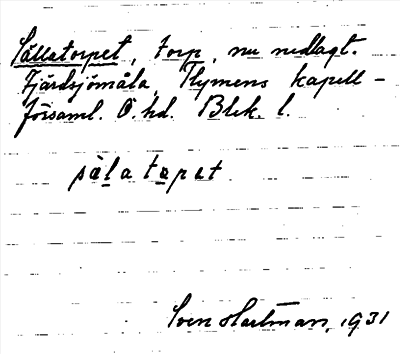 Sällatorpet, torp, nu nedlagt.
Fjärdsjömåla, Flymens kapell-
församl. Ö. hd. Blek. l.
sälatɒpət
Sven Hartman, 1931